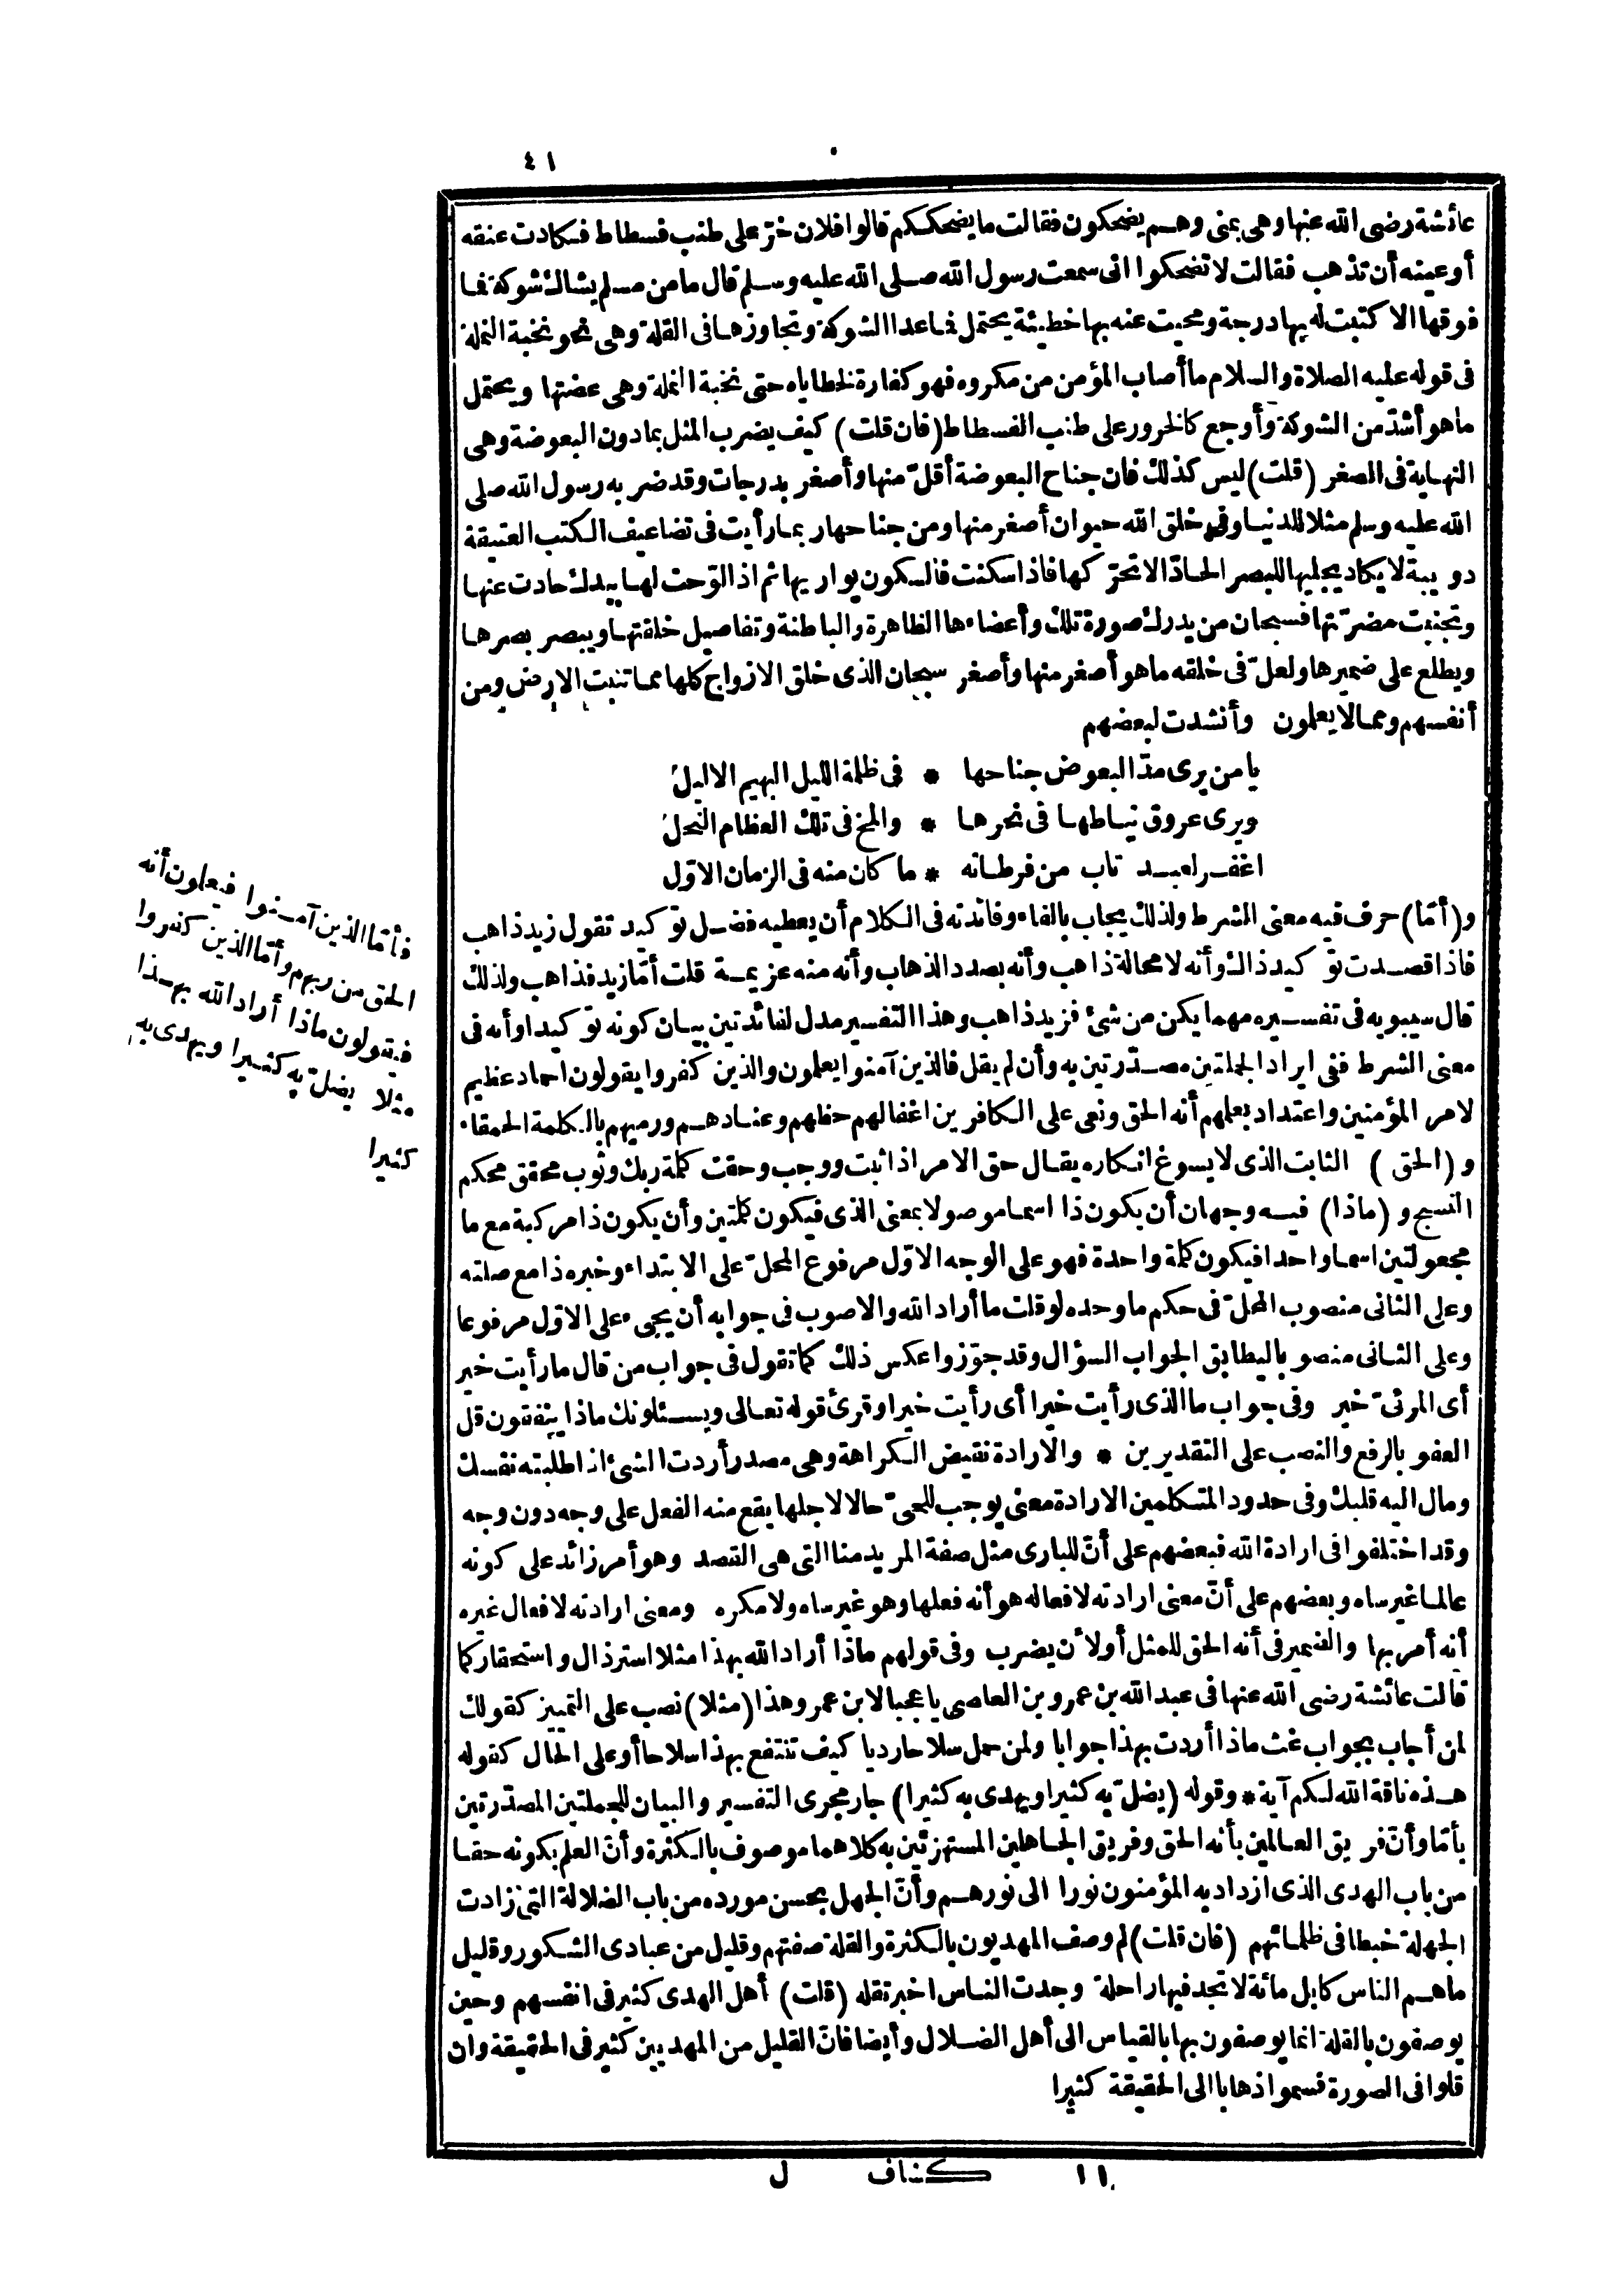 ٤١
عائشة رضى الله عنها وهى بمنى وهم يضحكون فقالت ما يضحككم قالوا فلان خرّ على طنب فسطاط فكادت عنقه
أو عينه أن تذهب فقالت لا تضحكوا انى سمعت رسول الله صلى الله عليه وسلم قال ما من مسلم يشاك شوكة فما
فوقها الا كتبت له بها درجة ومحيت عنه بها خطيئة يحتمل فما عدا الشوكة وتجاوزها فى القلة وهى نحو نخبة النملة
فى قوله عليه الصلاة والسلام ما أصاب المؤمن من مكروه فهو كفارة لخطاياه حتى نخبة النملة وهى عضتها ويحتمل
ما هو أشدّ من الشوكة وأوجع كالخرور على طنب الفسطاط (فان قلت) كيف يضرب المثل بما دون البعوضة وهى
النهاية فى الصغر (قلت) ليس كذلك فان جناح البعوضة أقلّ منها وأصغر بدرجات وقد ضربه رسول الله صلى
الله عليه وسلم مثلا للدنيا وفى خلق الله حيوان أصغر منها ومن جناحها ربما رأيت فى تضاعيف الكتب العتيقة
دويبة لا يكاد يجليها للبصر الحادّ الا تحرّكها فاذا سكنت فالسكون يواريها ثم اذا لوّحت لها بيدك حادت عنها
وتجنبت مضرّتها فسبحان من يدرك صورة تلك وأعضاءها الظاهرة والباطنة وتفاصيل خلقتها ويبصر بصرها
ويطلع على ضميرها ولعلّ فى خلقه ما هو أصغر منها وأصغر سبحان الذى خلق الازواج كلها مما تنبت الارض ومن
أنفسهم ومما لا يعلمون وأنشدت لبعضهم
يا من يرى مدّ البعوض جناحها * فى ظلمة الليل البهيم الاليل
ويرى عروق نياطها فى نحرها * والمخ فى تلك العظام النحل
اغفر لعبد تاب من فرطاته * ما كان منه فى الزمان الاوّل
و(أمّا) حرف فيه معنى الشرط ولذلك يجاب بالفاء وفائدته فى الكلام أن يعطيه فضل توكيد تقول زيد ذاهب
فاذا قصدت توكيد ذاك وأنه لا محالة ذاهب وأنه بصدد الذهاب وأنه منه عزيمة قلت أمّا زيد فذاهب ولذلك
قال سيبويه فى تفسيره مهما يكن من شئ فزيد ذاهب وهذا التفسير مدل لفائدتين بيان كونه توكيدا وأنه فى
معنى الشرط ففى ايراد الجملتين مصدّرتين به وأن لم يقل فالذين آمنوا يعلمون والذين كفروا يقولون احماد عظيم
لامر المؤمنين واعتداد بعلمهم أنه الحق ونعى على الكافرين اغفالهم حظهم وعنادهم ورميهم بالكلمة الحمقاء
و(الحق) الثابت الذى لا يسوغ انكاره يقال حق الامر اذا ثبت ووجب وحقت كلة ربك وثوب محقق محكم
النسج و(ماذا) فيه وجهان أن يكون ذا اسما موصولا بمعنى الذى فيكون كلمتين وأن يكون ذا مركبة مع ما
مجعولتين اسما واحدا فيكون كلمة واحدة فهو على الوجه الاوّل مرفوع المحلّ على الابتداء وخبره ذا مع صلته
وعلى الثانى منصوب المحلّ فى حكم ما وحده لو قلت ما أراد الله والاصوب فى جوابه أن يجىء على الاوّل مرفوعا
وعلى الثانى منصوبا ليطابق الجواب السؤال وقد جوّزوا عكس ذلك كما تقول فى جواب من قال ما رأيت خير
أى المرئىّ خير وفى جواب ما الذى رأيت خيرا أى رأيت خيرا وقرئ قوله تعالى ويسئلونك ماذا ينفقون قل
العفو بالرفع والنصب على التقديرين * والارادة نقيض الكراهة وهى مصدر أردت الشئ اذا طلبته نفسك
ومال اليه قلبك وفى حدود المتكلمين الارادة معنى يوجب للحىّ حالا لاجلها يقع منه الفعل على وجه دون وجه
وقد اختلفوا فى ارادة الله فبعضهم على أنّ للبارى مثل صفة المريد منا التى هى القصد وهو أمر زائد على كونه
عالما غير ساه وبعضهم على أنّ معنى ارادته لافعاله هو أنه فعلها وهو غير ساه ولا مكره ومعنى ارادته لافعال غيره
أنه أمر بها والضمير فى أنه الحق للمثل أو لأن يضرب وفى قولهم ماذا أراد الله بهذا مثلا استرذال واستحقار كما
قالت عائشة رضى الله عنها فى عبد الله بن عمرو بن العاصى يا عجبا لابن عمرو هذا (مثلا) نصب على التمييز كقولك
لمن أجاب بجواب غث ماذا أردت بهذا جوابا ولمن حمل سلاحا رديا كيف تنتفع بهذا سلاحا أو على الحال كقوله
هذه ناقة الله لكم آية * وقوله (يضلّ به كثيرا ويهدى به كثيرا) جار مجرى التفسير والبيان للجملتين المصدّرتين
بأمّا وأنّ فريق العالمين بأنه الحق وفريق الجاهلين المستهزئين به كلاهما موصوف بالكثرة وأنّ العلم بكونه حقا
من باب الهدى الذى ازداد به المؤمنون نورا الى نورهم وأنّ الجهل بحسن مورده من باب الضلالة التى زادت
الجهلة خبطا فى ظلماتهم (فان قلت) لم وصف المهديون بالكثرة والقلة صفتهم وقليل من عبادى الشكور وقليل
ما هم الناس كابل مائة لا تجد فيها راحلة وجدت الناس اخبر تقله (قلت) أهل الهدى كثير فى انفسهم وحين
يوصفون بالقلة انما يوصفون بها بالقياس الى أهل الضلال وأيضا فانّ القليل من المهديين كثير فى الحقيقة وان
قلوا فى الصورة فسموا ذهابا الى الحقيقة كثيرا
فأمّا الذين آمنوا فيعلمون أنه
الحق من ربهم وأمّا الذين كفروا
فيقولون ماذا أراد الله بهذا
مثلا يضلّ به كثيرا ويهدى به
كثيرا
١١ كشاف ل